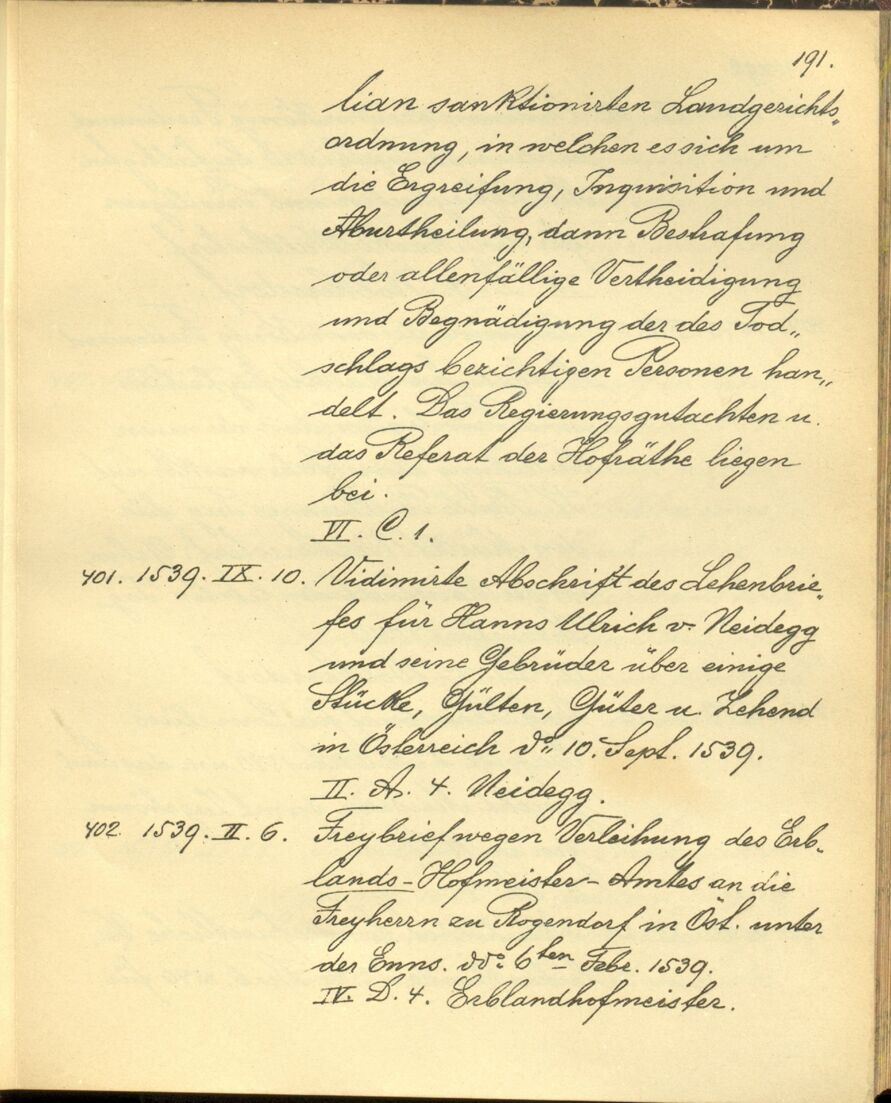 191.
lian sanktionirten Landgerichts„
ordnung, in welchen es sich um
die Ergreifung, Inquisition und
Aburtheilung, dann Bestrafung
oder allenfällige Vertheidigung
und Begnädigung der des Tod„
schlags bezichtigen Personen han„
delt. Das Regierungsgutachten u.
das Referat der Hofräthe liegen
bei.
VI. C. 1.
401. 1539. IX. 10. Vidimirte Abschrift des Lehenbrie„
fes für Hanns Ulrich v. Neidegg
und seine Gebrüder über einige
Stücke, Gülten, Güter u. Zehend
in Österreich do 10. Sept. 1539.
II. A. 4. Neidegg.
402. 1539. II. 6. Freybrief wegen Verleihung des Erb„
lands-Hofmeister-Amtes an die
Freyherrn zu Rogendorf in Öst. unter
der Enns. ddo 6ten Febr. 1539.
IV. D. 4. Erblandhofmeister.